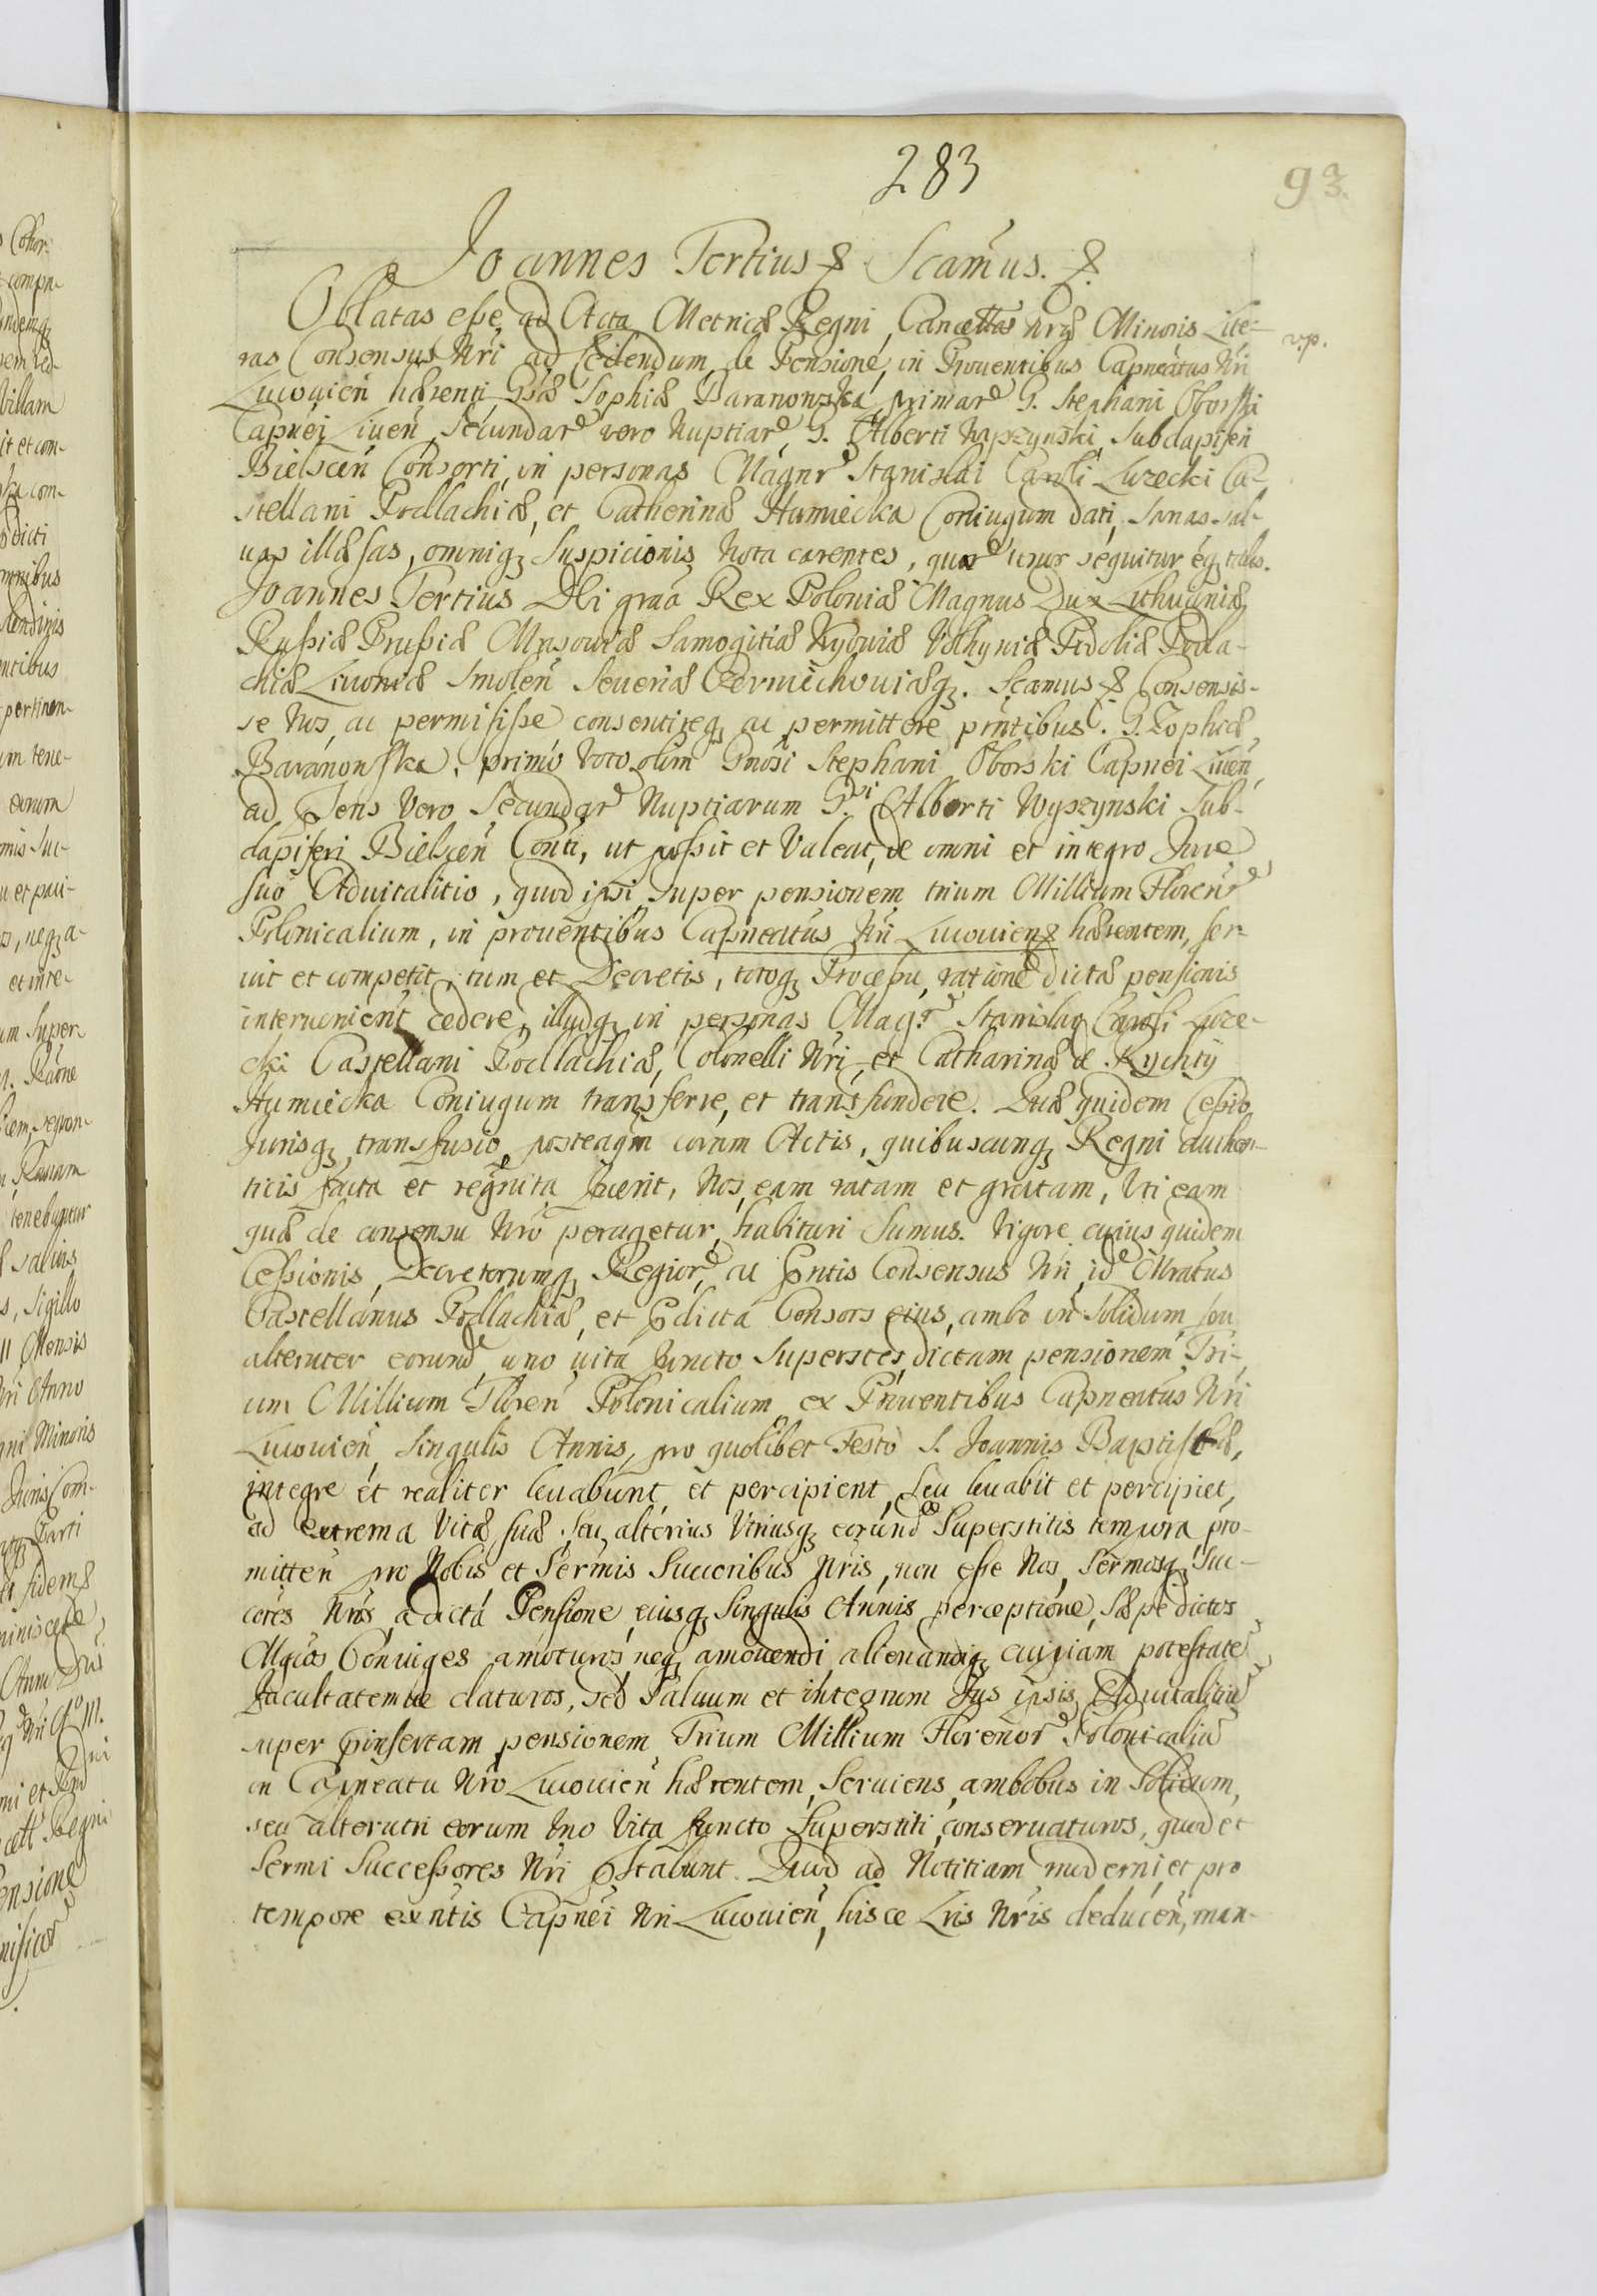 283
93.
Joannes Tertius & Scamus. &
Oblatas esse, ad Acta Metricæ Regni, Cancellæ Nræ Minoris Lite-
v.p.
ras Consensus Nri ad cedendum de Pensione, in Prouentibus Capneatus Nri
Lucouien hærenti Gsæ Sophiæ Baranowska, primar G. Stephani Oborski
Capnei Liuen, Secundar vero Nuptiar, G. Alberti Wyszynski, Subdapiferi
Bielscen Consorti, in personas Magnr Stanislai Caroli Luzecki Ca-
stellani Podlachiæ, et Catherinæ Humiecka Coniugum dati, sanas sal-
uas illæsas, omniq suspicionis nota carentes, quar tenor sequitur eq talis.
Joannes Tertius Dei graa Rex Poloniæ Magnus Dux Lithuaniæ
Russiæ Prussiæ Masouiæ Samogitiæ Kyouiæ Volhyniæ Podoliæ Podla-
chiæ Liuoniæ Smolen Seueriæ Czerniechouiæq. Scamus & Consensis-
se Nos, ac permisisse consentireq ac permittere pntibus. G. Zophiæ
Baranonska, primo voto olim Gnosi Stephani Oborski Capnei Liuen,
ad Sens vero Secundar Nuptiarum G. Alberti Wyszynski Sub-
dapiferi Bielscen Conti, ut possit et Valeat, de omni et integro Jure
suo Aduitalitio, quod ipsi super pensionem trium Millium Floren
Polonicalium, in prouentibus Capneatus Nri Lucouien & hærentem, ser-
uit et competit, tum et Decretis, totoq Processu, ratione dictæ pensionis
interuenient cedere, illudq in personas Mag. Stanislai Caroli Luze-
cki Castellani Podlachiæ, Colonelli Nri, et Catharinæ de Rychty
Humiecka Coniugum transferre, et transfundere. Quæ quidem Cessio
Jurisq transfusio, posteaqm coram Actis, quibuscunq Regni authen-
ticis facta et regnita fuerit, Nos eam ratam et gratam, Uti eam
quæ de consensu Nro peragetur, habituri sumus. Vigore cuius quidem
Cessionis, Decretorumq Regior, ac pntis Consensus Nri, id Mratus
Castellanus Podlachiæ, et pdicta Consors eius, ambo in solidum, seu
alteruter eorund, uno uita functo Superstes, dictam pensionem Tri-
um Millium Floren Polonicalium, ex Prouentibus Capneatus Nri
Lucouien, Singulis Annis, pro quolibet Festo S. Joannis Baptistæ,
integre et realiter leuabunt, et percipient, Seu leuabit et percipiet,
ad extrema Vitæ suæ, Seu alterius Utriusq eorund Superstitis tempora, pro-
mitten pro Nobis et Sermis Successoribus Nris, non esse Nos, Sermosq Suc-
cores Nros, a dicta Pensione, eiusq Singulis Annis perceptione, sæpe dictos
Mgcos Coniuges amoturos, neq amouendi, alienandiq cuipiam potestate
Facultatemue daturos, sed Saluum et integrum Jus ipsis Aduitalitiu
super pinsertam pensionem Trium Millium Florenor Polonicaliu
in Capneatu Nro Lucouien hærentem, Seruiens, ambobus in Solidum,
seu alterutri eorum Uno Vita functo Superstiti, conseruaturos, quod et
Sermi Successores Nri pstabunt. Quod ad Notitiam moderni et pro
tempore exntis Capnei Nri Lucouien, hisce Lris Nris deducen, man-